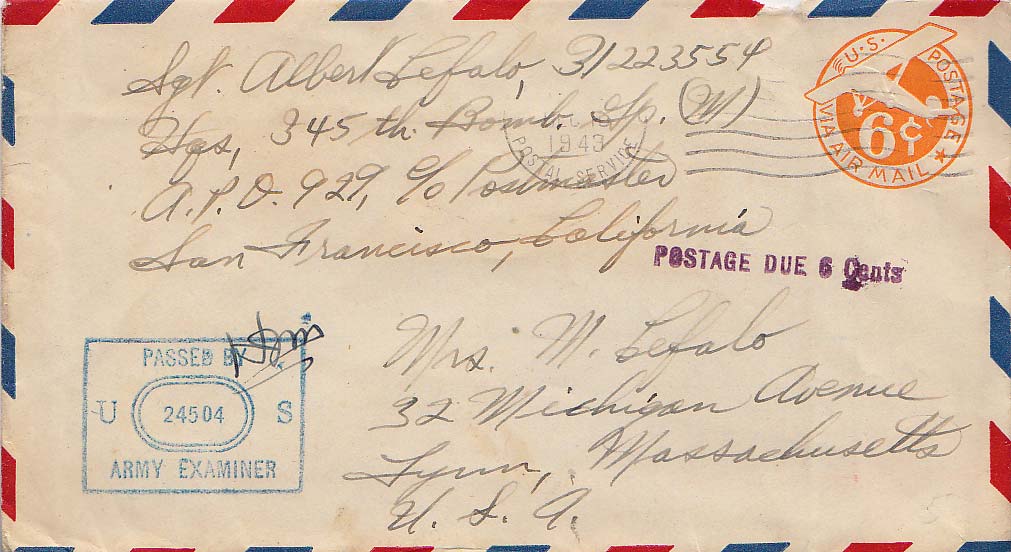 Sgt. Albert Cefalo, 31223554
Hqs, 345th Bomb. Gp. (M)
A.P.O. 929, c/o Postmaster
San Francisco, California
1943
POSTAL SERVICE
U.S. POSTAGE
6¢
VIA AIR MAIL
POSTAGE DUE 6 Cents
PASSED BY
U 24504 S
ARMY EXAMINER
Mrs. M. Cefalo
32 Michigan Avenue
Lynn, Massachusetts
U. S. A.